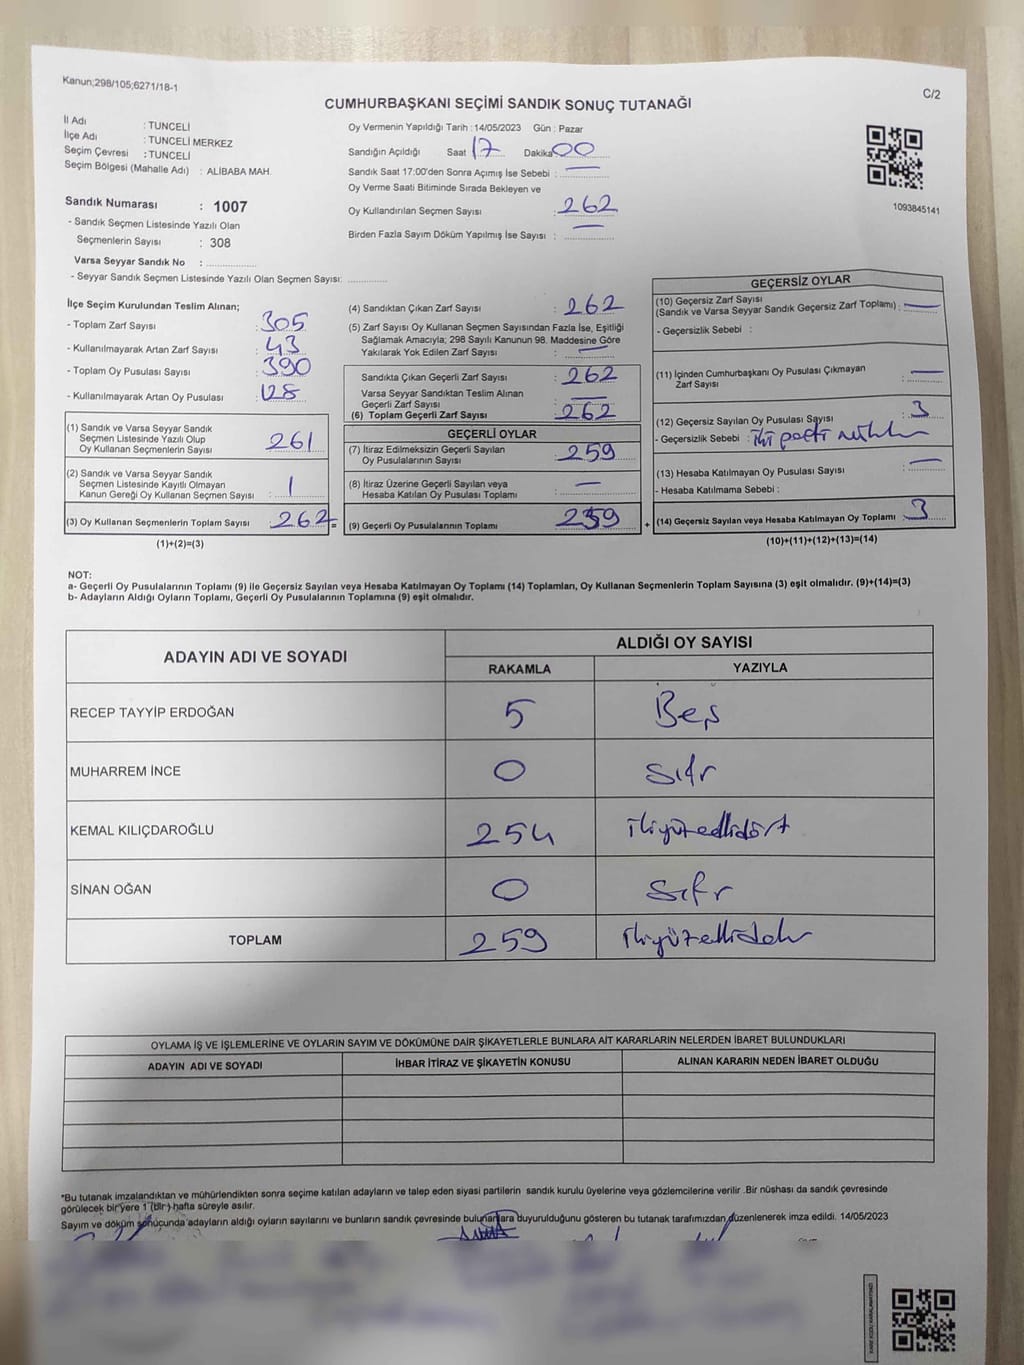 Kanun;298/105;6271/18-1
C/2
CUMHURBAŞKANI SEÇİMİ SANDIK SONUÇ TUTANAĞI
İl Adı : TUNCELİ
İlçe Adı : TUNCELİ MERKEZ
Seçim Çevresi : TUNCELİ
Seçim Bölgesi (Mahalle Adı) : ALİBABA MAH.
Sandık Numarası : 1007
- Sandık Seçmen Listesinde Yazılı Olan
Seçmenlerin Sayısı : 308
Varsa Seyyar Sandık No :
- Seyyar Sandık Seçmen Listesinde Yazılı Olan Seçmen Sayısı:
Oy Vermenin Yapıldığı Tarih : 14/05/2023 Gün : Pazar
Sandığın Açıldığı Saat 17 Dakika 00
Sandık Saat 17:00'den Sonra Açımış İse Sebebi : —
Oy Verme Saati Bitiminde Sırada Bekleyen ve
Oy Kullandırılan Seçmen Sayısı : 262
Birden Fazla Sayım Döküm Yapılmış İse Sayısı : —
1093845141
İlçe Seçim Kurulundan Teslim Alınan;
- Toplam Zarf Sayısı : 305
- Kullanılmayarak Artan Zarf Sayısı : 43
- Toplam Oy Pusulası Sayısı : 390
- Kullanılmayarak Artan Oy Pusulası : 128
(1) Sandık ve Varsa Seyyar Sandık
Seçmen Listesinde Yazılı Olup
Oy Kullanan Seçmenlerin Sayısı : 261
(2) Sandık ve Varsa Seyyar Sandık
Seçmen Listesinde Kayıtlı Olmayan
Kanun Gereği Oy Kullanan Seçmen Sayısı : 1
(3) Oy Kullanan Seçmenlerin Toplam Sayısı : 262 =
(1)+(2)=(3)
(4) Sandıktan Çıkan Zarf Sayısı : 262
(5) Zarf Sayısı Oy Kullanan Seçmen Sayısından Fazla İse, Eşitliği
Sağlamak Amacıyla; 298 Sayılı Kanunun 98. Maddesine Göre
Yakılarak Yok Edilen Zarf Sayısı : —
Sandıkta Çıkan Geçerli Zarf Sayısı : 262
Varsa Seyyar Sandıktan Teslim Alınan
Geçerli Zarf Sayısı : —
(6) Toplam Geçerli Zarf Sayısı : 262
GEÇERLİ OYLAR
(7) İtiraz Edilmeksizin Geçerli Sayılan
Oy Pusulalarının Sayısı : 259
(8) İtiraz Üzerine Geçerli Sayılan veya
Hesaba Katılan Oy Pusulası Toplamı : —
(9) Geçerli Oy Pusulalarının Toplamı 259 +
GEÇERSİZ OYLAR
(10) Geçersiz Zarf Sayısı
(Sandık ve Varsa Seyyar Sandık Geçersiz Zarf Toplamı) : —
- Geçersizlik Sebebi :
(11) İçinden Cumhurbaşkanı Oy Pusulası Çıkmayan
Zarf Sayısı : —
(12) Geçersiz Sayılan Oy Pusulası Sayısı : 3
- Geçersizlik Sebebi : iki parti
(13) Hesaba Katılmayan Oy Pusulası Sayısı : —
- Hesaba Katılmama Sebebi :
(14) Geçersiz Sayılan veya Hesaba Katılmayan Oy Toplamı : 3
(10)+(11)+(12)+(13)=(14)
NOT:
a- Geçerli Oy Pusulalarının Toplamı (9) ile Geçersiz Sayılan veya Hesaba Katılmayan Oy Toplamı (14) Toplamları, Oy Kullanan Seçmenlerin Toplam Sayısına (3) eşit olmalıdır. (9)+(14)=(3)
b- Adayların Aldığı Oyların Toplamı, Geçerli Oy Pusulalarının Toplamına (9) eşit olmalıdır.
ADAYIN ADI VE SOYADI
ALDIĞI OY SAYISI
RAKAMLA YAZIYLA
RECEP TAYYİP ERDOĞAN 5 Beş
MUHARREM İNCE 0 Sıfır
KEMAL KILIÇDAROĞLU 254 ikiyüzellidört
SİNAN OĞAN 0 Sıfır
TOPLAM 259 ikiyüzellidokuz
OYLAMA İŞ VE İŞLEMLERİNE VE OYLARIN SAYIM VE DÖKÜMÜNE DAİR ŞİKAYETLERLE BUNLARA AİT KARARLARIN NELERDEN İBARET BULUNDUKLARI
ADAYIN ADI VE SOYADI İHBAR İTİRAZ VE ŞİKAYETİN KONUSU ALINAN KARARIN NEDEN İBARET OLDUĞU
*Bu tutanak imzalandıktan ve mühürlendikten sonra seçime katılan adayların ve talep eden siyasi partilerin sandık kurulu üyelerine veya gözlemcilerine verilir .Bir nüshası da sandık çevresinde
görülecek bir yere 1 (bir) hafta süreyle asılır.
Sayım ve döküm sonucunda adayların aldığı oyların sayılarını ve bunların sandık çevresinde bulunanlara duyurulduğunu gösteren bu tutanak tarafımızdan düzenlenerek imza edildi. 14/05/2023